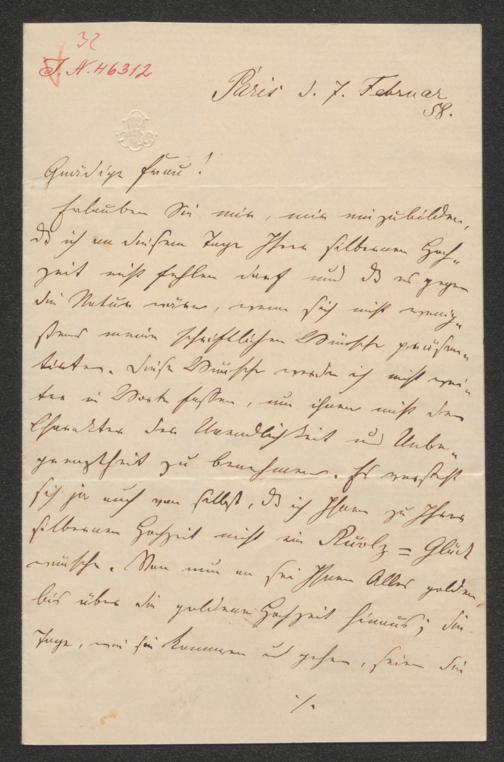 32
I. N. 46312
Paris d. 7. Februar
58.
Gnädige Frau!
Erlauben Sie mir, mir einzubilden,
dß ich an diesem Tage Ihrer silbernen Hoch„
zeit nicht fehlen darf und dß es gegen
die Natur wäre, wenn sich nicht wenig„
stens meine schriftlichen Wünsche präsen„
tirten. Diese Wünsche werde ich nicht wei„
ter in Worte fassen, um ihnen nicht den
Charakter der Unendlichkeit und Unbe„
grenztheit zu benehmen. Es versteht
sich ja auch von selbst, dß ich Ihnen zu Ihrer
silbernen Hochzeit nicht ein Ruolz = Glück
wünsche. Von nun an sei Ihnen Alles golden,
bis über die goldene Hochzeit hinaus; die
Tage, wie sie kommen und gehen, seien die
./.